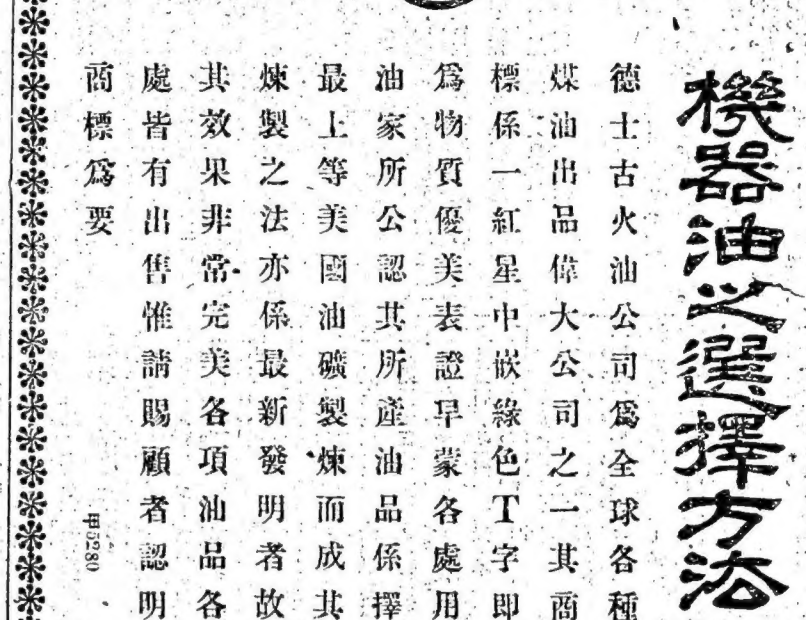 機器油之選擇方法
德士古火油公司爲全球各種
煤油出品偉大公司之一其商
標係一紅星中嵌綠色T字即
爲物質優美表證早蒙各處用
油家所公認其所產油品係擇
最上等美國油礦製煉而成其
煉製之法亦係最新發明者故
其效果非常完美各項油品各
處皆有出售惟請賜顧者認明
商標爲要
甲5280